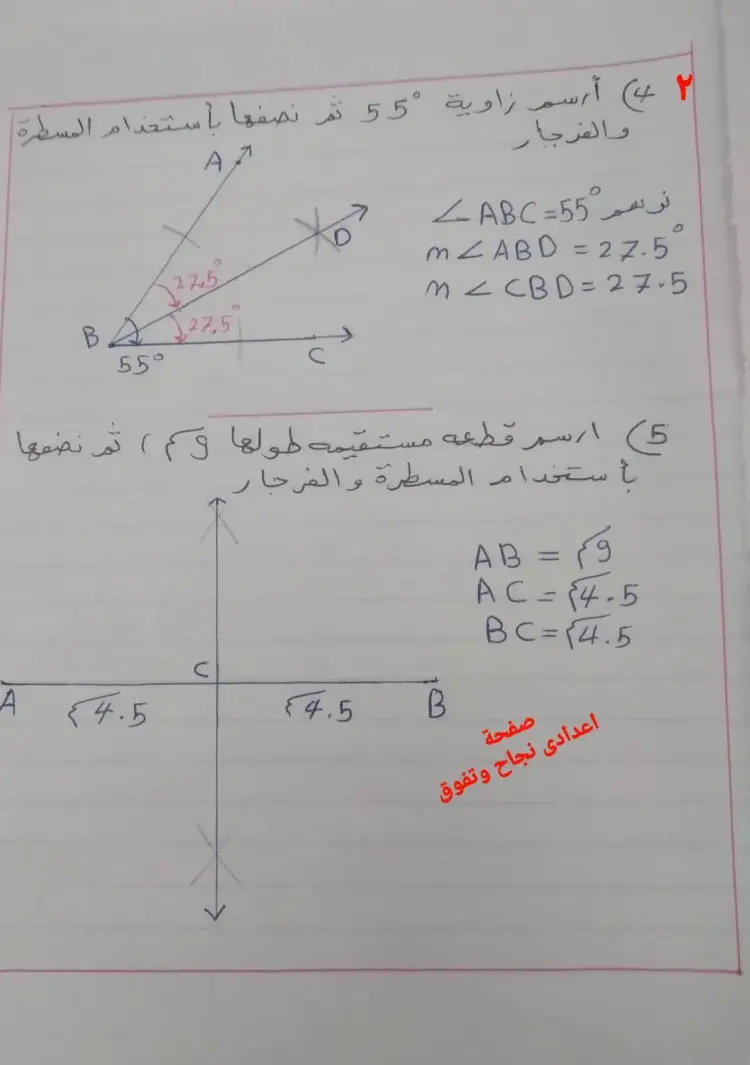 ٢
4) أرسم زاوية 55° ثم نصفها بأستخدام المسطرة
والفرجار
نرسم ∠ABC=55°
m∠ABD = 27.5°
m∠CBD = 27.5
A
D
27.5°
27.5°
B
55°
C
5) ارسم قطعه مستقيمه طولها 9سم ، ثم نصفها
بأستخدام المسطرة والفرجار
AB = 9سم
AC = 4.5سم
BC = 4.5سم
C
A
4.5سم
4.5سم
B
صفحة
اعدادى نجاح وتفوق